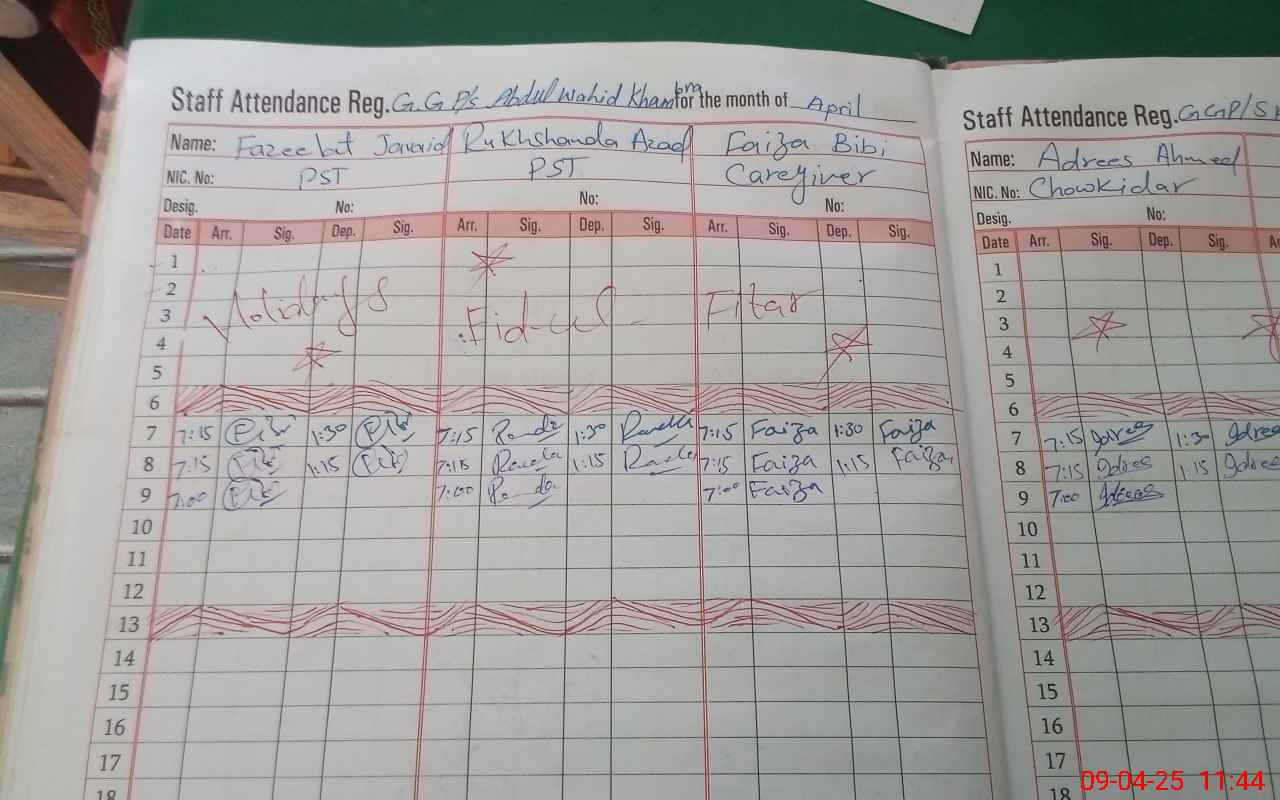 Staff Attendance Reg. G.G P/s Abdul Wahid Khambra for the month of April
Name: Fazeelat Javaid Rukhshanda Azad Faiza Bibi
NIC. No: PST PST Caregiver
Desig. No: No: No:
Date Arr. Sig. Dep. Sig. Arr. Sig. Dep. Sig. Arr. Sig. Dep. Sig.
1
2
3 Holidays Eid-ul Fitar
4
5
6
7 7:15 1:30 7:15 1:30 7:15 Faiza 1:30 Faiza
8 7:15 1:15 7:15 1:15 7:15 Faiza 1:15 Faiza
9 7:00 7:00 7:00 Faiza
10
11
12
13
14
15
16
17
18
Staff Attendance Reg. GGP/S
Name: Adrees Ahmed
NIC. No: Chowkidar
Desig. No:
Date Arr. Sig. Dep. Sig.
1
2
3
4
5
6
7 7:15 Idrees 1:30 Idrees
8 7:15 Idrees 1:15 Idrees
9 7:00 Idrees
10
11
12
13
14
15
16
17
18
09-04-25 11:44